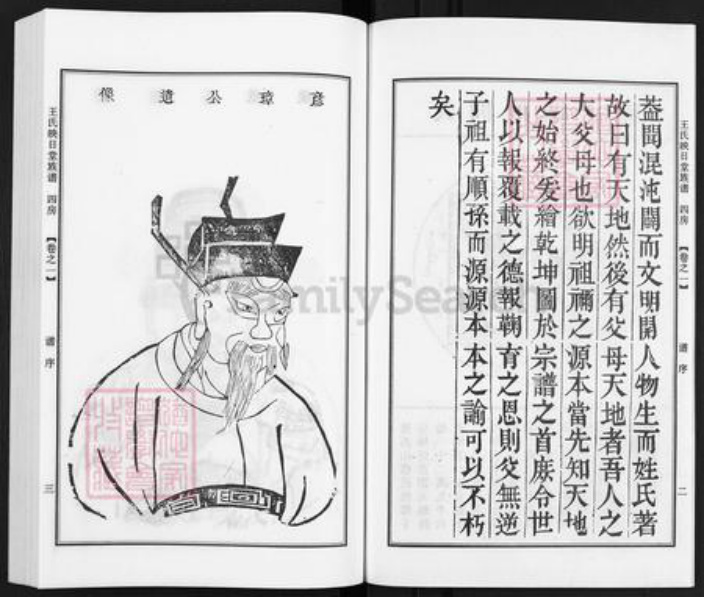 王氏映日堂族谱 四房 【卷之一】 谱序 二
蓋聞混沌闢而文明開人物生而姓氏著
故曰有天地然後有父母天地者吾人之
大父母也欲明祖禰之源本當先知天地
之始終爰繪乾坤圖於宗譜之首庶合世
人以報覆載之德報鞠育之恩則父無逆
子祖有順孫而源源本本之諭可以不朽
矣
彥璋公遺像
王氏映日堂族谱 四房 【卷之一】 谱序 三
FamilySearch